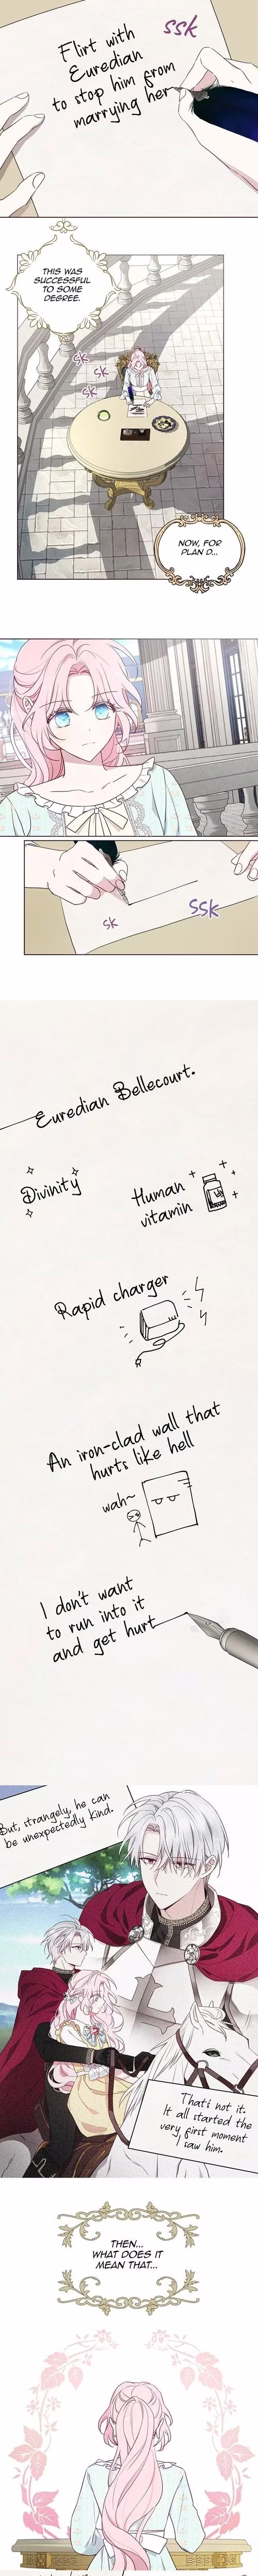 SSK
Flirt with
Euredian
to stop him from
marrying her
THIS WAS
SUCCESSFUL
TO SOME
DEGREE.
SK
SK
SK
NOW, FOR
PLAN D...
SK
SSK
Euredian Bellecourt.
Divinity
Human
vitamin
Rapid charger
An iron-clad wall that
hurts like hell
wah~
I don't want
to run into it
and get hurt
But, strangely, he can
be unexpectedly kind.
That's not it.
It all started the
very first moment
I saw him.
THEN...
WHAT DOES IT
MEAN THAT...